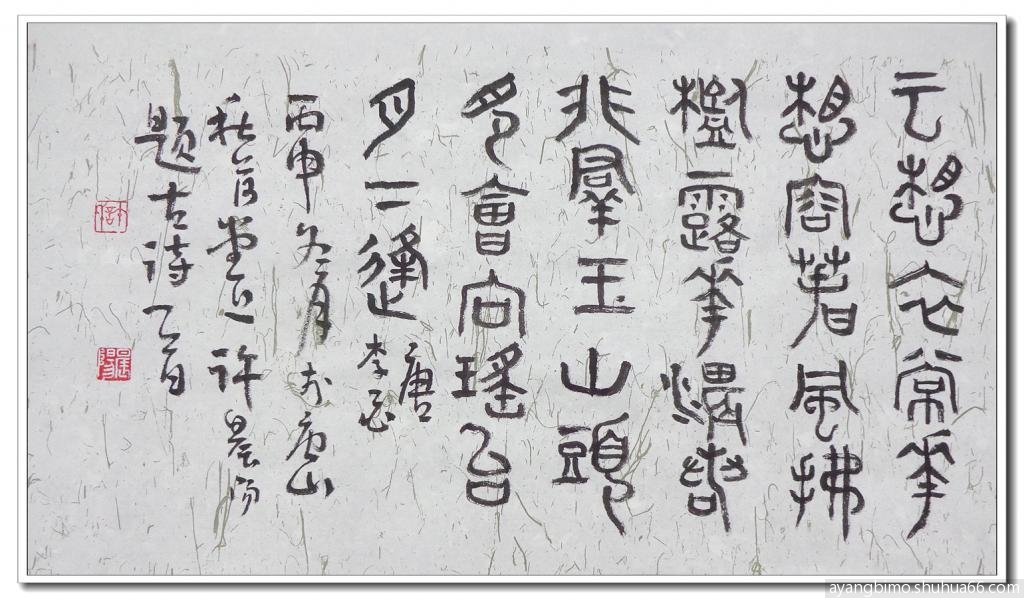 云想衣常華
想容萅風拂
檻露華濃若
非羣玉山頭
見會向瑶台
月下逢
唐
李白
丙申冬月於唐山
許晨陽
題古詩一首
晨陽
ayangbimo.shuhua66.com